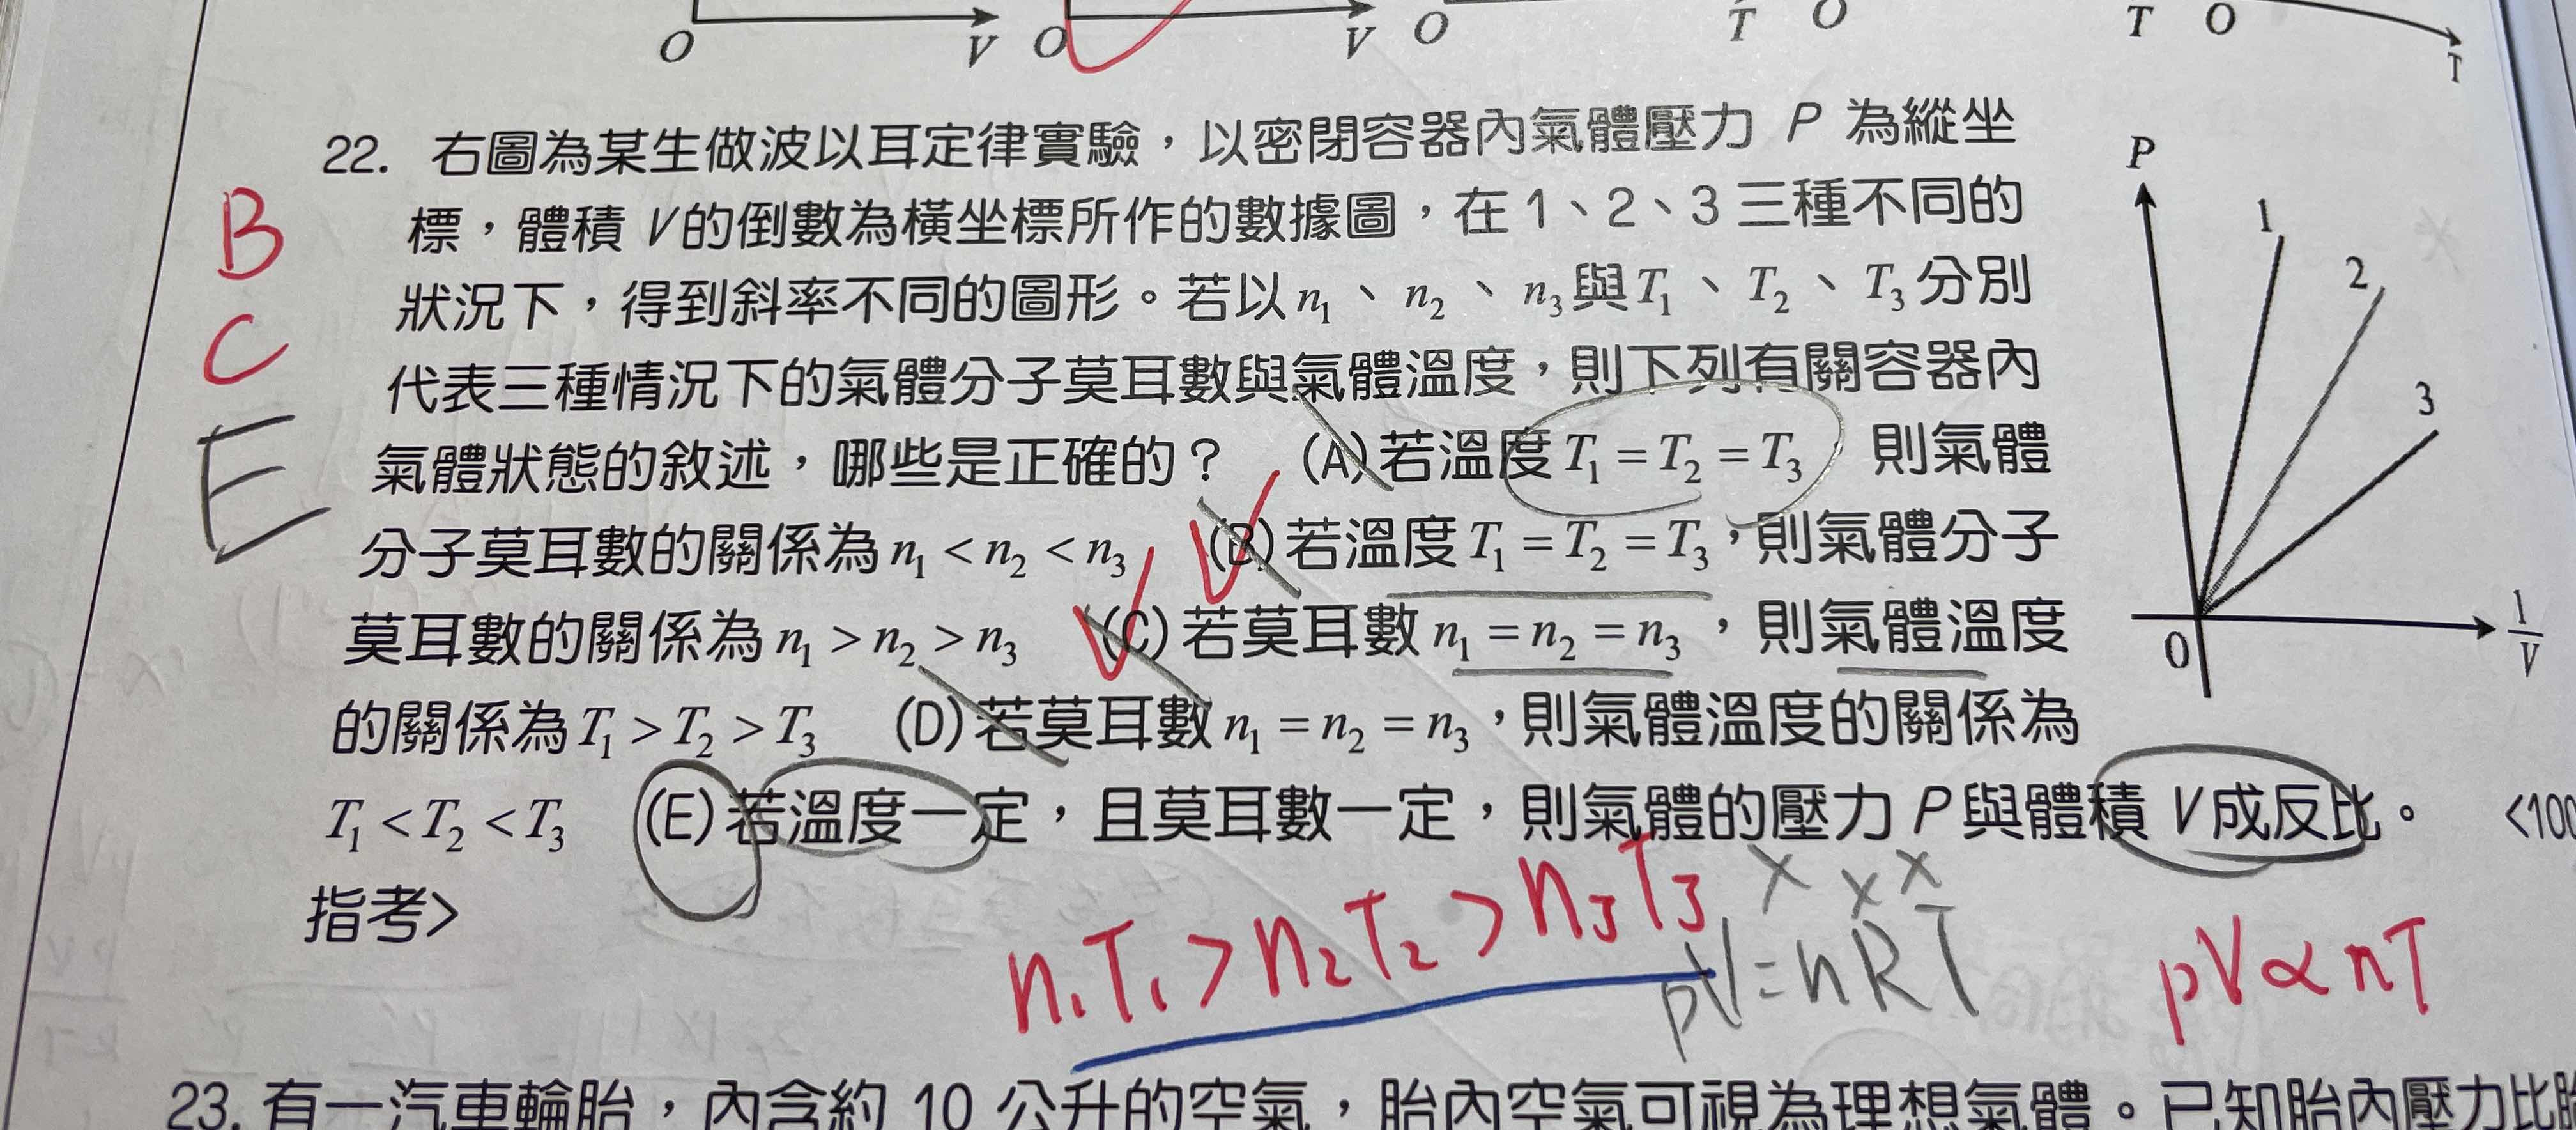 O V O V O T O T O T
22. 右圖為某生做波以耳定律實驗，以密閉容器內氣體壓力 P 為縱坐
標，體積 V的倒數為橫坐標所作的數據圖，在 1、2、3 三種不同的
狀況下，得到斜率不同的圖形。若以 n₁、n₂、n₃與T₁、T₂、T₃分別
代表三種情況下的氣體分子莫耳數與氣體溫度，則下列有關容器內
氣體狀態的敘述，哪些是正確的？ (A)若溫度T₁ = T₂ = T₃，則氣體
分子莫耳數的關係為 n₁ < n₂ < n₃ (B)若溫度T₁ = T₂ = T₃，則氣體分子
莫耳數的關係為 n₁ > n₂ > n₃ (C)若莫耳數 n₁ = n₂ = n₃，則氣體溫度
的關係為T₁ > T₂ > T₃ (D)若莫耳數 n₁ = n₂ = n₃，則氣體溫度的關係為
T₁ < T₂ < T₃ (E)若溫度一定，且莫耳數一定，則氣體的壓力 P 與體積 V 成反比。 <100
指考>
B
C
E
P
1
2
3
0
1/V
n₁T₁ > n₂T₂ > n₃T₃
x x x
pV = nRT
pV ∝ nT
23. 有一汽車輪胎，內含約 10 公升的空氣，胎內空氣可視為理想氣體。已知胎內壓力比